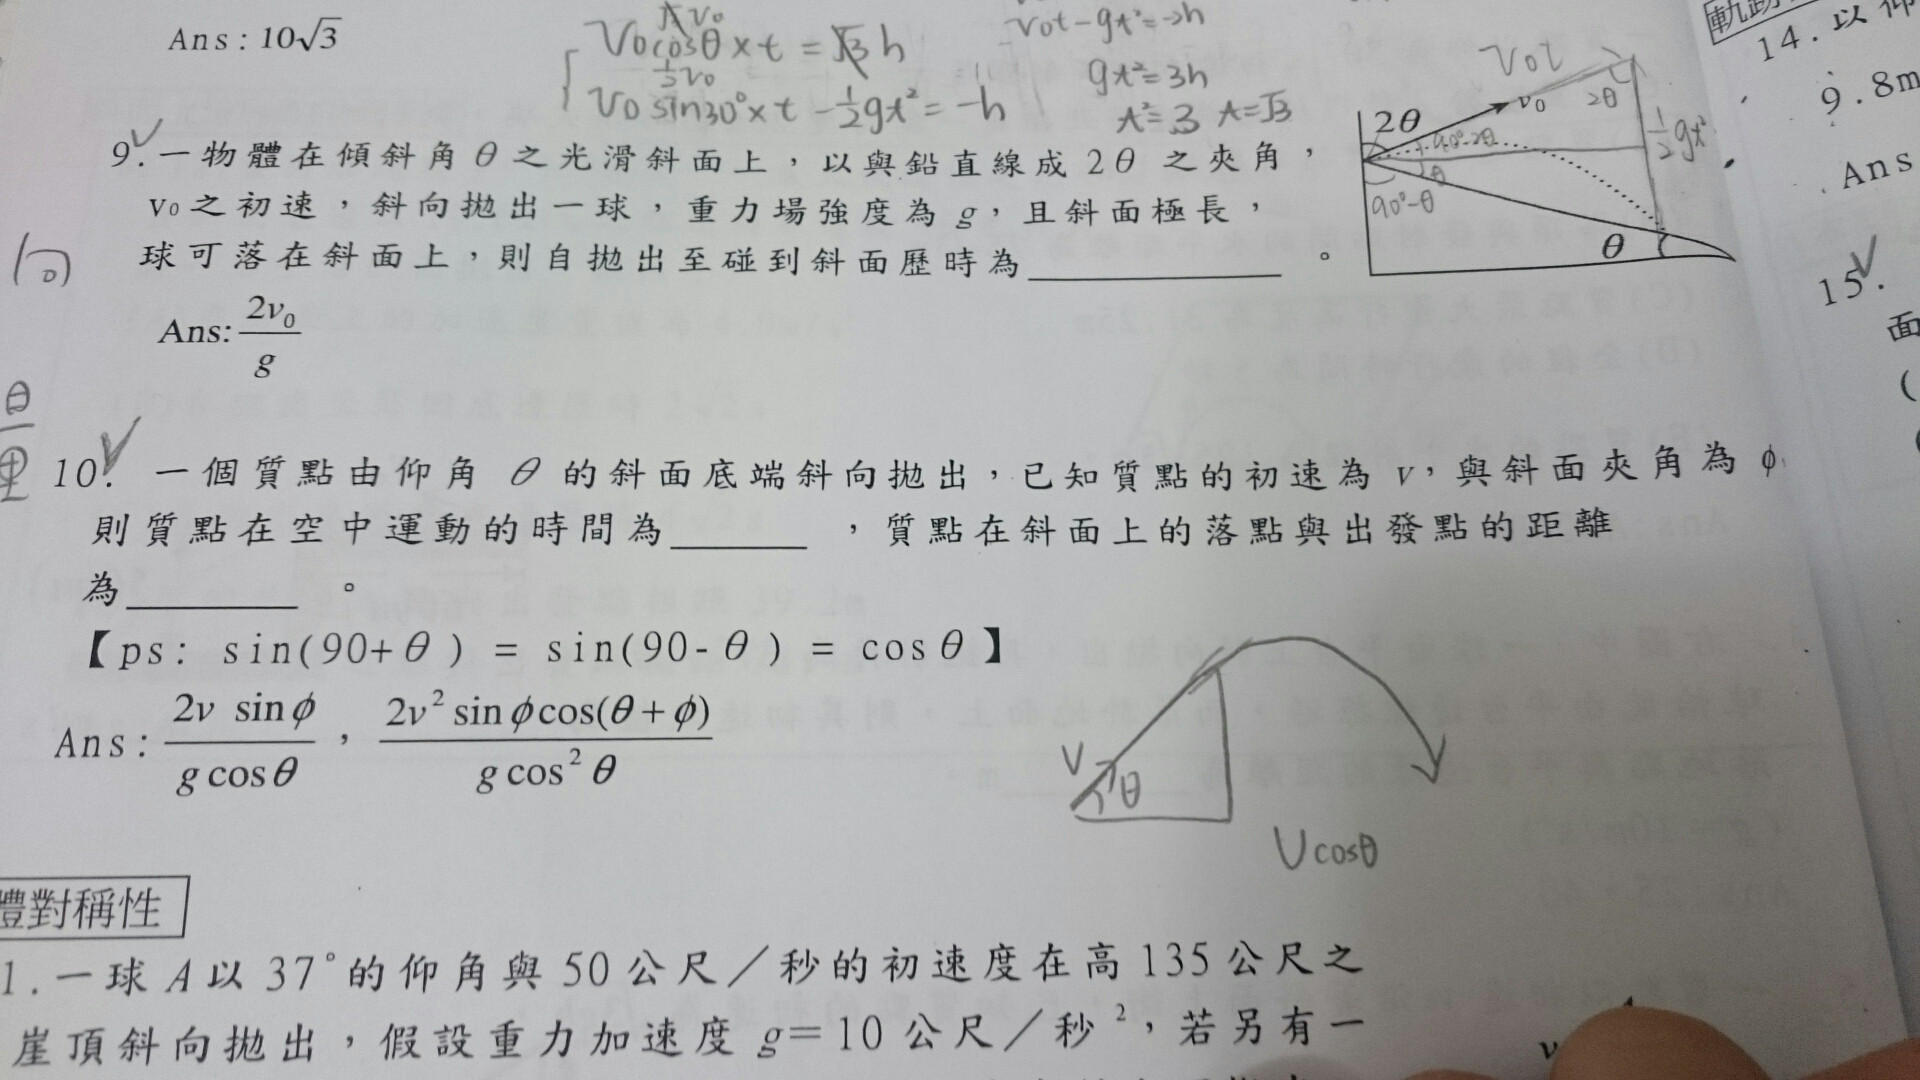 Ans : 10√3
V₀cosθ × t = √3 h
½V₀
V₀ sin30° × t - ½gt² = -h
V₀t - gt² = -2h
gt² = 3h
t² = 3 t = √3
9. 一物體在傾斜角 θ 之光滑斜面上，以與鉛直線成 2θ 之夾角，
v₀ 之初速，斜向拋出一球，重力場強度為 g，且斜面極長，
球可落在斜面上，則自拋出至碰到斜面歷時為＿＿＿＿＿。
Ans: 2v₀/g
2θ
v₀
V₀t
2θ
90°-2θ
θ
90°-θ
½gt²
θ
10. 一個質點由仰角 θ 的斜面底端斜向拋出，已知質點的初速為 v，與斜面夾角為 φ
則質點在空中運動的時間為＿＿＿，質點在斜面上的落點與出發點的距離
為＿＿＿＿。
【ps: sin(90+θ) = sin(90-θ) = cosθ】
Ans : 2v sinφ / g cosθ ， 2v² sinφcos(θ+φ) / g cos² θ
V
θ
V cosθ
體對稱性
1. 一球 A 以 37°的仰角與 50 公尺／秒的初速度在高 135 公尺之
崖頂斜向拋出，假設重力加速度 g＝10 公尺／秒²，若另有一
14. 以仰
9.8m
Ans
15.
面
(